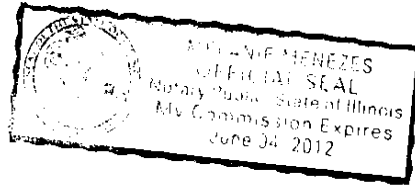 MELANIE MENEZES
OFFICIAL SEAL
Notary Public State of Illinois
My Commission Expires
June 04, 2012